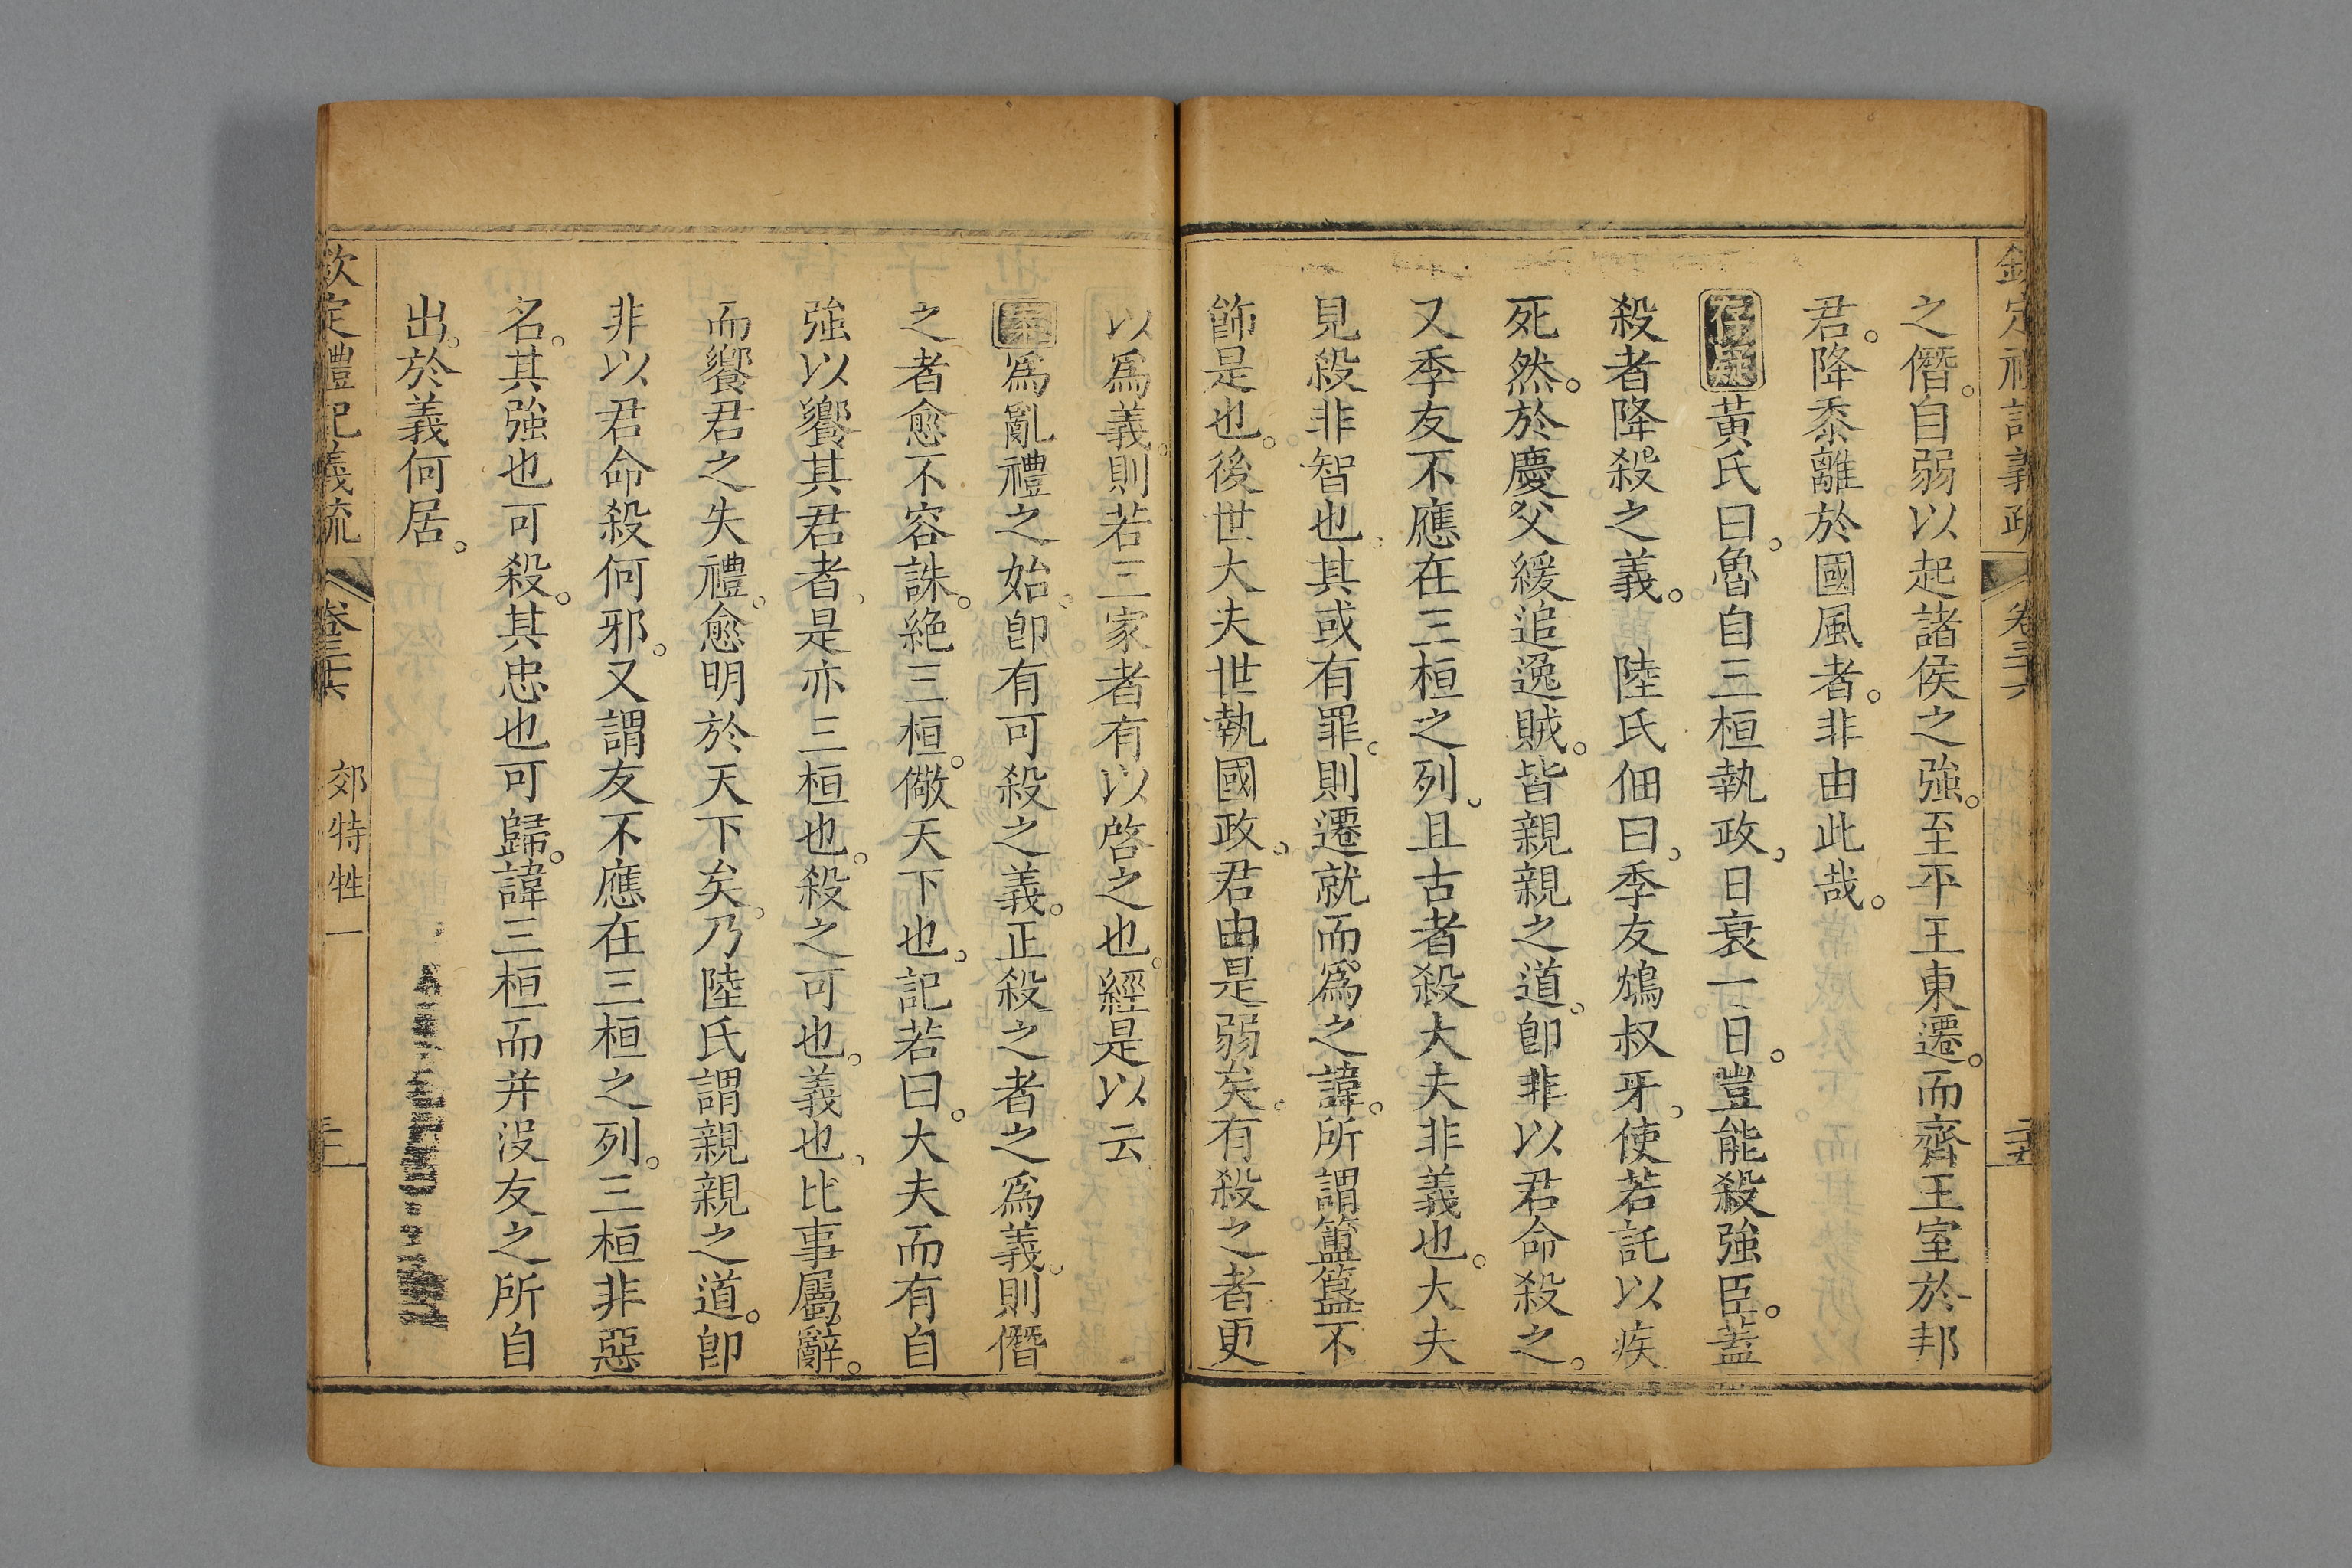 欽定禮記義疏 卷三十六 二十五
之僭。自弱以起諸侯之強。至平王東遷。而齊王室於邦
君。降黍離於國風者。非由此哉。
存疑 黃氏曰。魯自三桓執政。日衰一日。豈能殺強臣。蓋
殺者降殺之義。 陸氏佃曰。季友鴆叔牙。使若託以疾
死然。於慶父緩追逸賊。皆親親之道。卽非以君命殺之。
又季友不應在三桓之列。且古者殺大夫非義也。大夫
見殺非智也。其或有罪。則遷就而爲之諱。所謂簠簋不
飾是也。後世大夫世執國政。君由是弱矣。有殺之者更
以爲義。則若三家者有以啓之也。經是以云
案 爲亂禮之始。卽有可殺之義。正殺之者之爲義。則僭
之者愈不容誅。絶三桓。儆天下也。記若曰。大夫而有自
強以饗其君者。是亦三桓也。殺之可也。義也。比事屬辭。
而饗君之失禮。愈明於天下矣。乃陸氏謂親親之道。卽
非以君命殺何邪。又謂友不應在三桓之列。三桓非惡
名。其強也可殺。其忠也可歸。諱三桓而并沒友之所自
出。於義何居。
欽定禮記義疏 卷三十六 郊特牲一